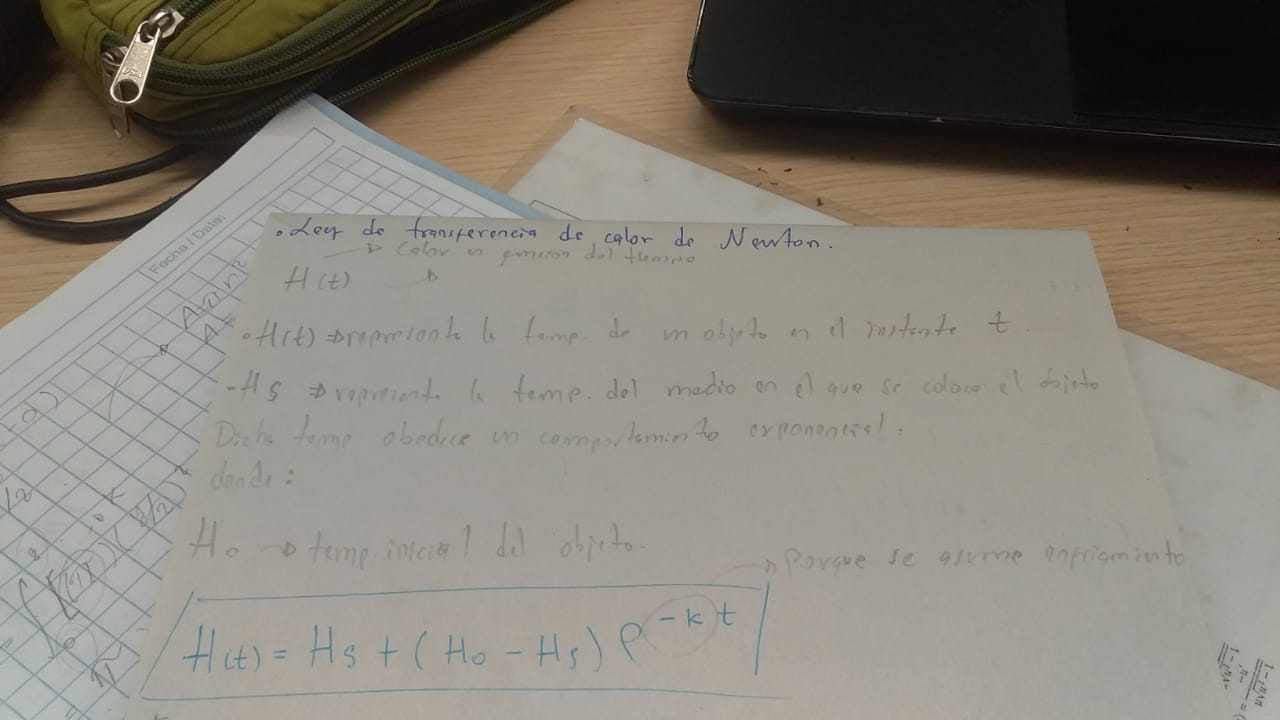 . Ley de transferencia de calor de Newton.
→ Calor en función del tiempo
H(t)
. H(t) ⇒ representa la temp. de un objeto en el instante t.
- Hs ⇒ representa la temp. del medio en el que se coloca el objeto
Dicha temp obedece un comportamiento exponencial:
donde:
Ho → temp. inicial del objeto.
→ Porque se asume enfriamiento
H(t) = Hs + (Ho - Hs) e^{-kt}
Fecha / Date: